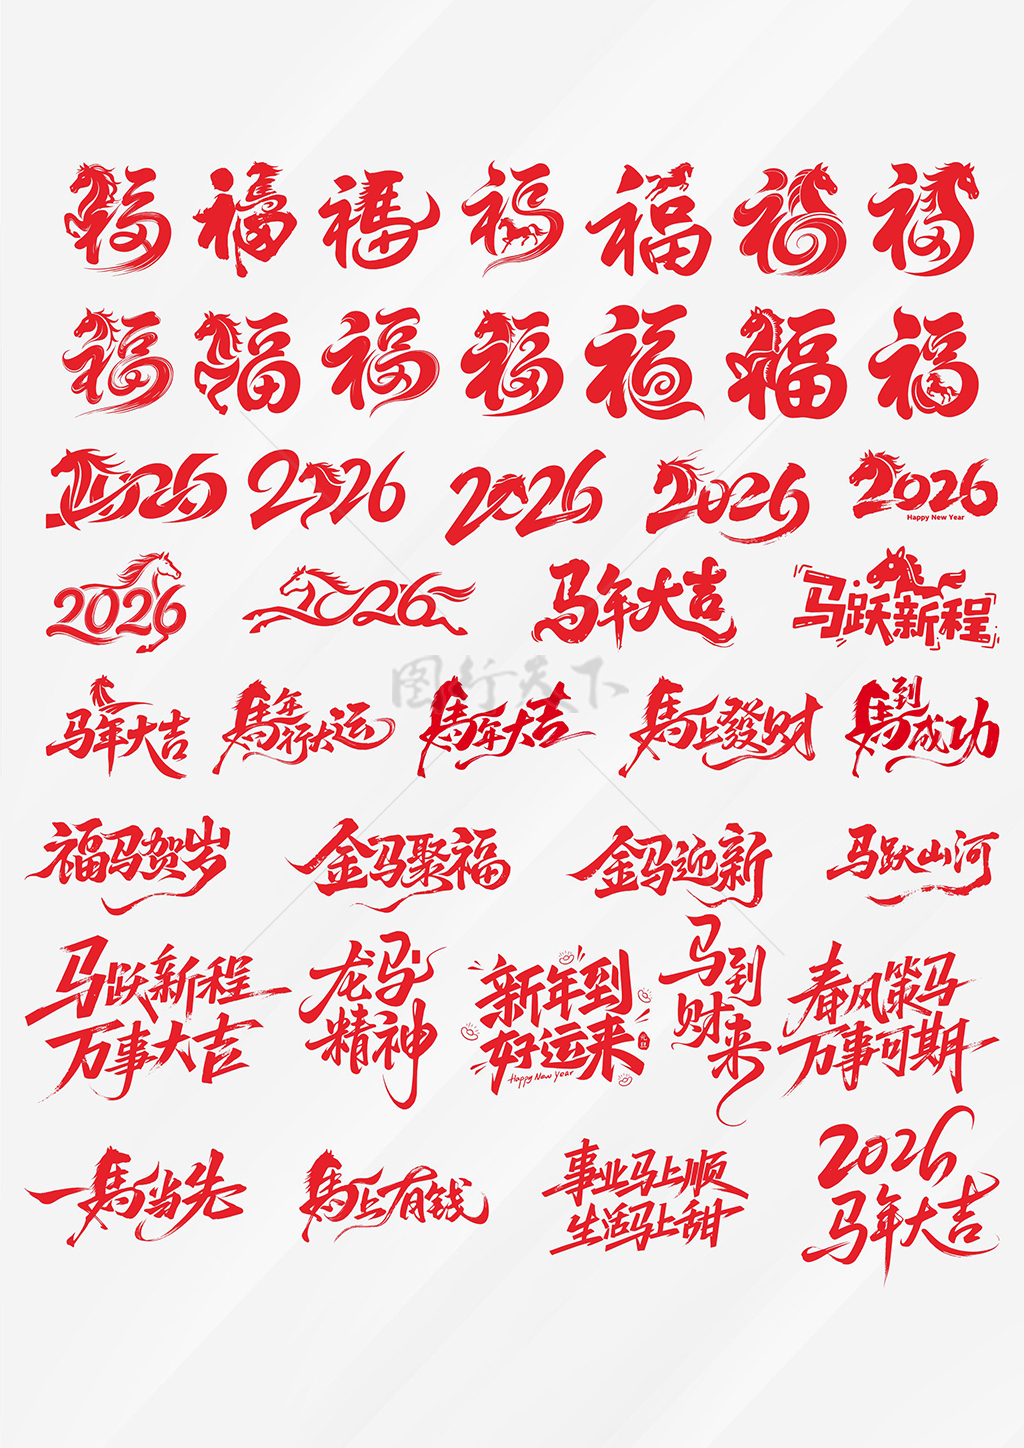 福 福 福 福 福 福 福
福 福 福 福 福 福 福
2026 2026 2026 2026 2026
Happy New Year
2026 2026 马年大吉 马跃新程
图行天下
马年大吉 馬年行大运 馬年大吉 馬上發财 馬到成功
福马贺岁 金马聚福 金马迎新 马跃山河
马跃新程
万事大吉
龙马
精神
新年到
好运来
Happy New Year
马到
财来
春风策马
万事可期
一馬当先 馬上有钱
事业马上顺
生活马上甜
2026
马年大吉